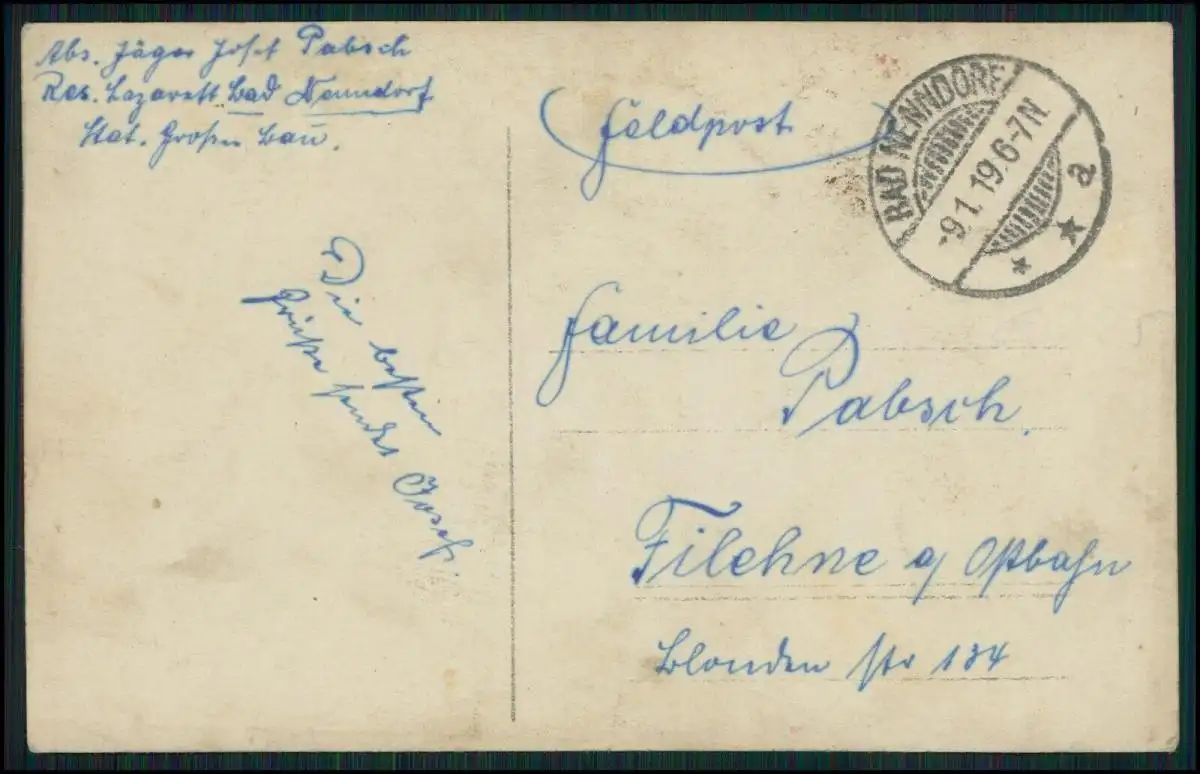 Abs. Jäger Josef Pabsch
Res. Lazarett Bad Nenndorf
Stat. Großer Bau.
Feldpost
BAD NENNDORF
-9.1.19.6-7N
a
Die besten
Grüße sendet Josef.
Familie
Pabsch.
Filehne a/ Ostbahn
Blonden Str 134